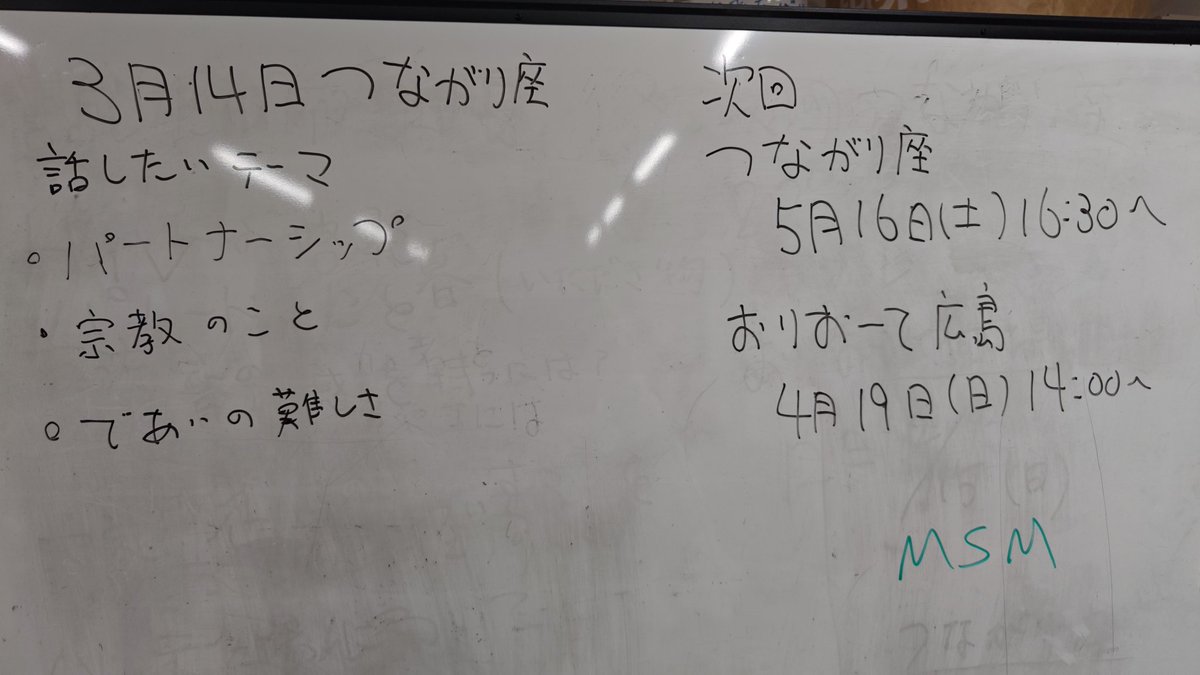 3月14日 つながり座
話したいテーマ
。パートナーシップ
・宗教のこと
。であいの難しさ
次回
つながり座
5月16日(土)16:30〜
おりおーて広島
4月19日(日)14:00〜
MSM